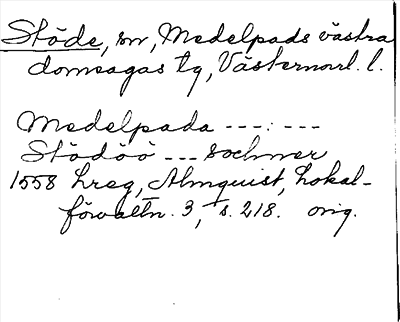 Stöde, sn, Medelpads västra
domsagas tg, Västernorrl. l.
Medelpada ---:---
Stödöö --- sochner
1558 hreg, Almquist, Lokal-
förvaltn. 3, s. 218. orig.